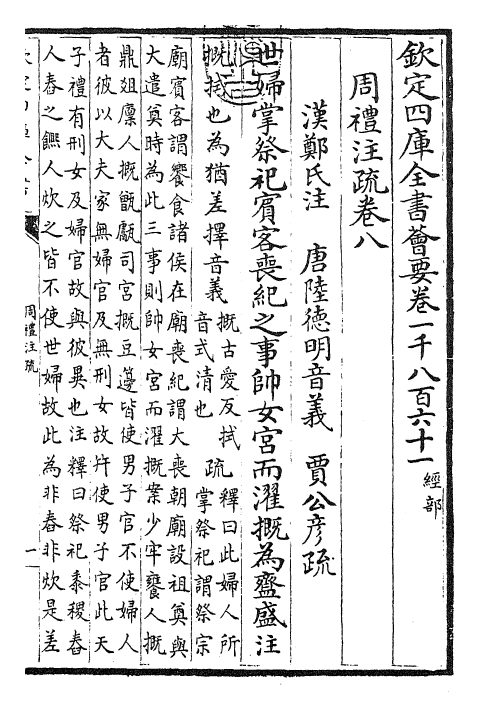 欽定四庫全書薈要卷一千八百六十一
經部
周禮注疏卷八
漢鄭氏注 唐陸德明音義 賈公彦疏
世婦掌祭祀賓客喪紀之事帥女宮而濯摡為齍盛注
摡拭也為猶差擇音義
摡古愛反拭
音式清也
疏
釋曰此婦人所
掌祭祀謂祭宗
廟賓客謂饗食諸侯在廟喪紀謂大喪朝廟設祖奠與
大遣奠時為此三事則帥女宮而濯摡案少牢饔人摡
鼎俎廩人摡甑甗司宮摡豆籩皆使男子官不使婦人
者彼以大夫家無婦官及無刑女故幷使男子官此天
子禮有刑女及婦官故與彼異也注釋曰祭祀黍稷舂
人舂之饎人炊之皆不使世婦故此為非舂非炊是差
周禮注疏
一